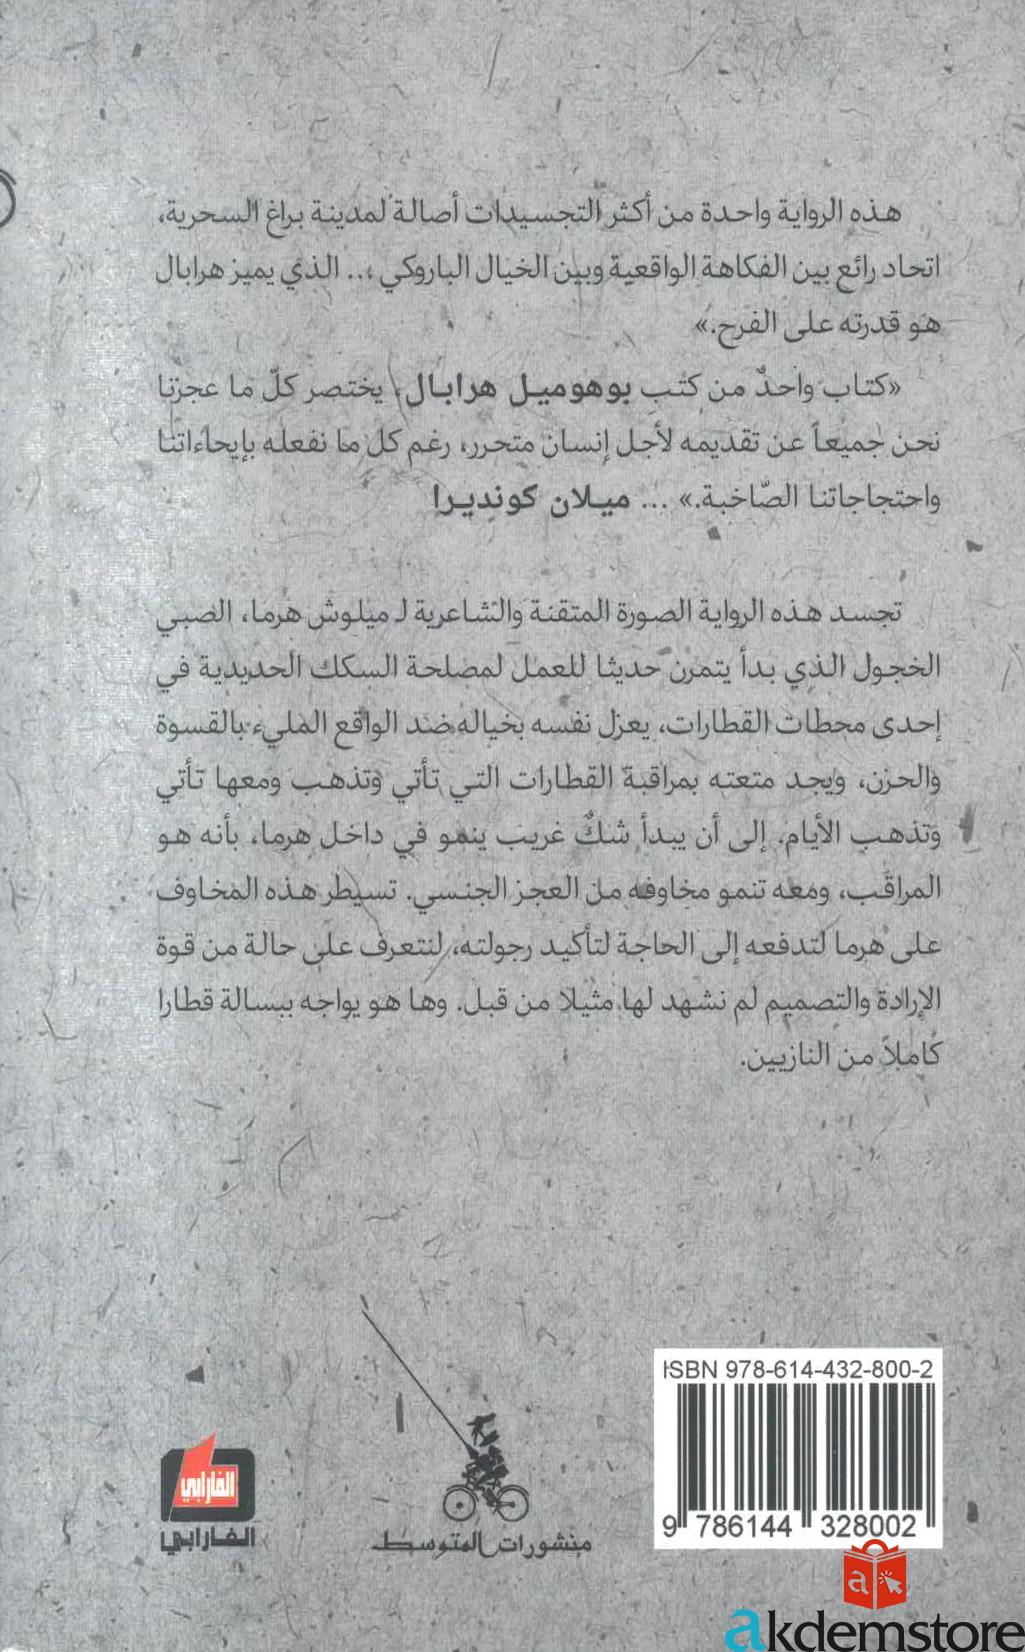 هذه الرواية واحدة من أكثر التجسيدات أصالة لمدينة براغ السحرية،
اتحاد رائع بين الفكاهة الواقعية وبين الخيال الباروكي ،.. الذي يميز هرابال
هو قدرته على الفرح.»
«كتاب واحدٌ من كتب بوهوميل هرابال، يختصر كلّ ما عجزنا
نحن جميعاً عن تقديمه لأجل إنسان متحرر، رغم كل ما نفعله بإيحاءاتنا
واحتجاجاتنا الصّاخبة.» ... ميلان كونديرا
تجسد هذه الرواية الصورة المتقنة والشاعرية لـ ميلوش هرما، الصبي
الخجول الذي بدأ يتمرن حديثا للعمل لمصلحة السكك الحديدية في
إحدى محطات القطارات، يعزل نفسه بخياله ضد الواقع المليء بالقسوة
والحزن، ويجد متعته بمراقبة القطارات التي تأتي وتذهب ومعها تأتي
وتذهب الأيام. إلى أن يبدأ شكٌ غريب ينمو في داخل هرما، بأنه هو
المراقَب، ومعه تنمو مخاوفه من العجز الجنسي. تسيطر هذه المخاوف
على هرما لتدفعه إلى الحاجة لتأكيد رجولته، لنتعرف على حالة من قوة
الإرادة والتصميم لم نشهد لها مثيلا من قبل. وها هو يواجه ببسالة قطارا
كاملاً من النازيين.
ISBN 978-614-432-800-2
9 786144 328002
الفارابي
الفارابي
منشورات المتوسط
a
akdemstore